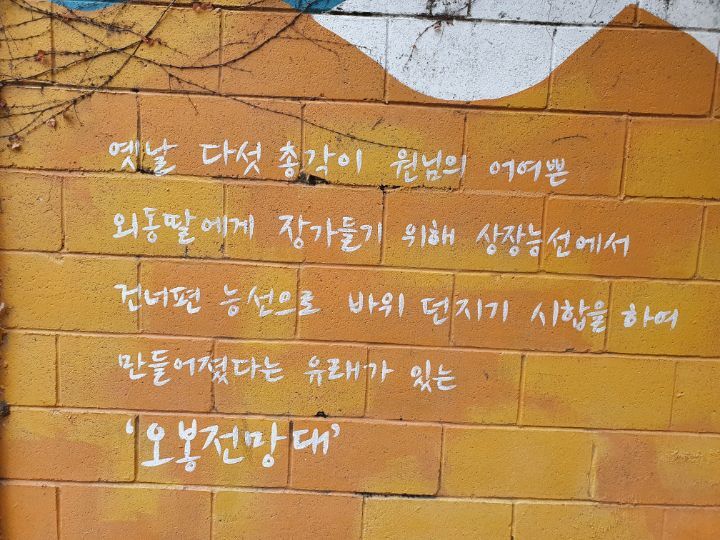 옛날 다섯 총각이 원님의 어여쁜
외동딸에게 장가들기 위해 상장능선에서
건너편 능선으로 바위 던지기 시합을 하여
만들어졌다는 유래가 있는
'오봉전망대'